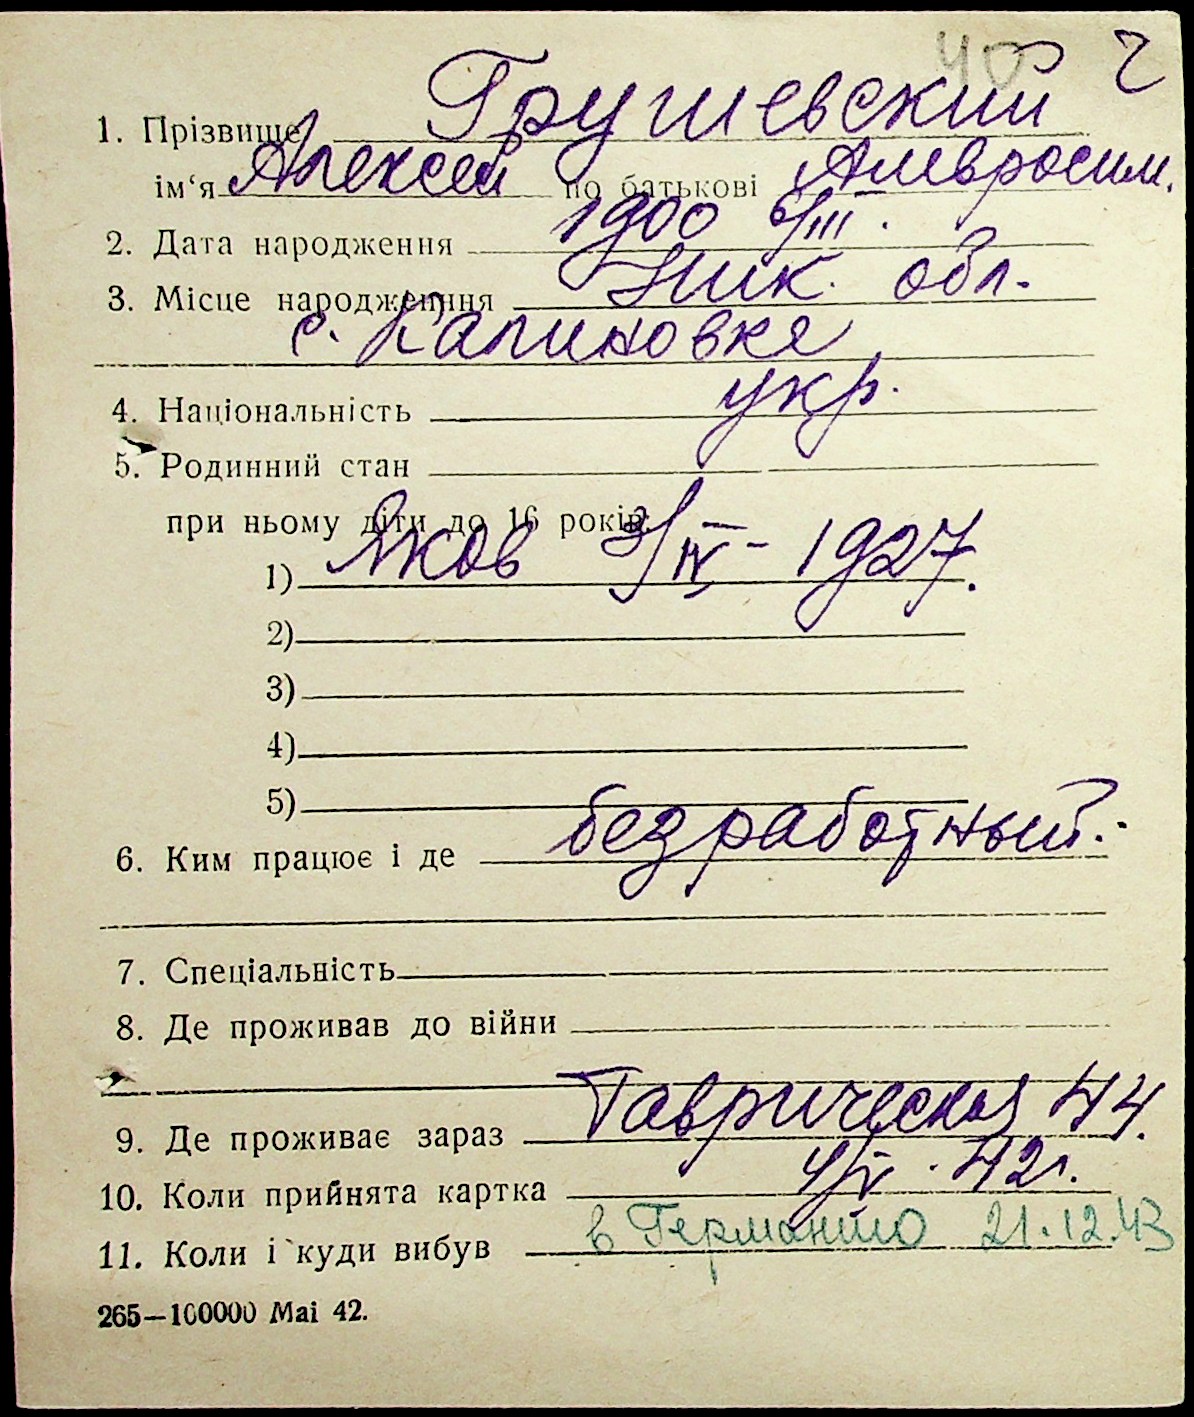 40 2
1. Прізвище Грушевский
ім‘я Алексей по батькові Амвросим.
2. Дата народження 1900 6/III.
3. Місце народження Ник. обл.
с. Калиновка
4. Національність укр.
5. Родинний стан
при ньому діти до 16 років:
1) Яков 3/IV - 1927.
2)
3)
4)
5)
6. Ким працює і де безработный.
7. Спеціальність
8. Де проживав до війни
9. Де проживає зараз Таврическая 44.
10. Коли прийнята картка 4/V. 42г.
11. Коли і куди вибув в Германию 21.12.43
265—100000 Mai 42.